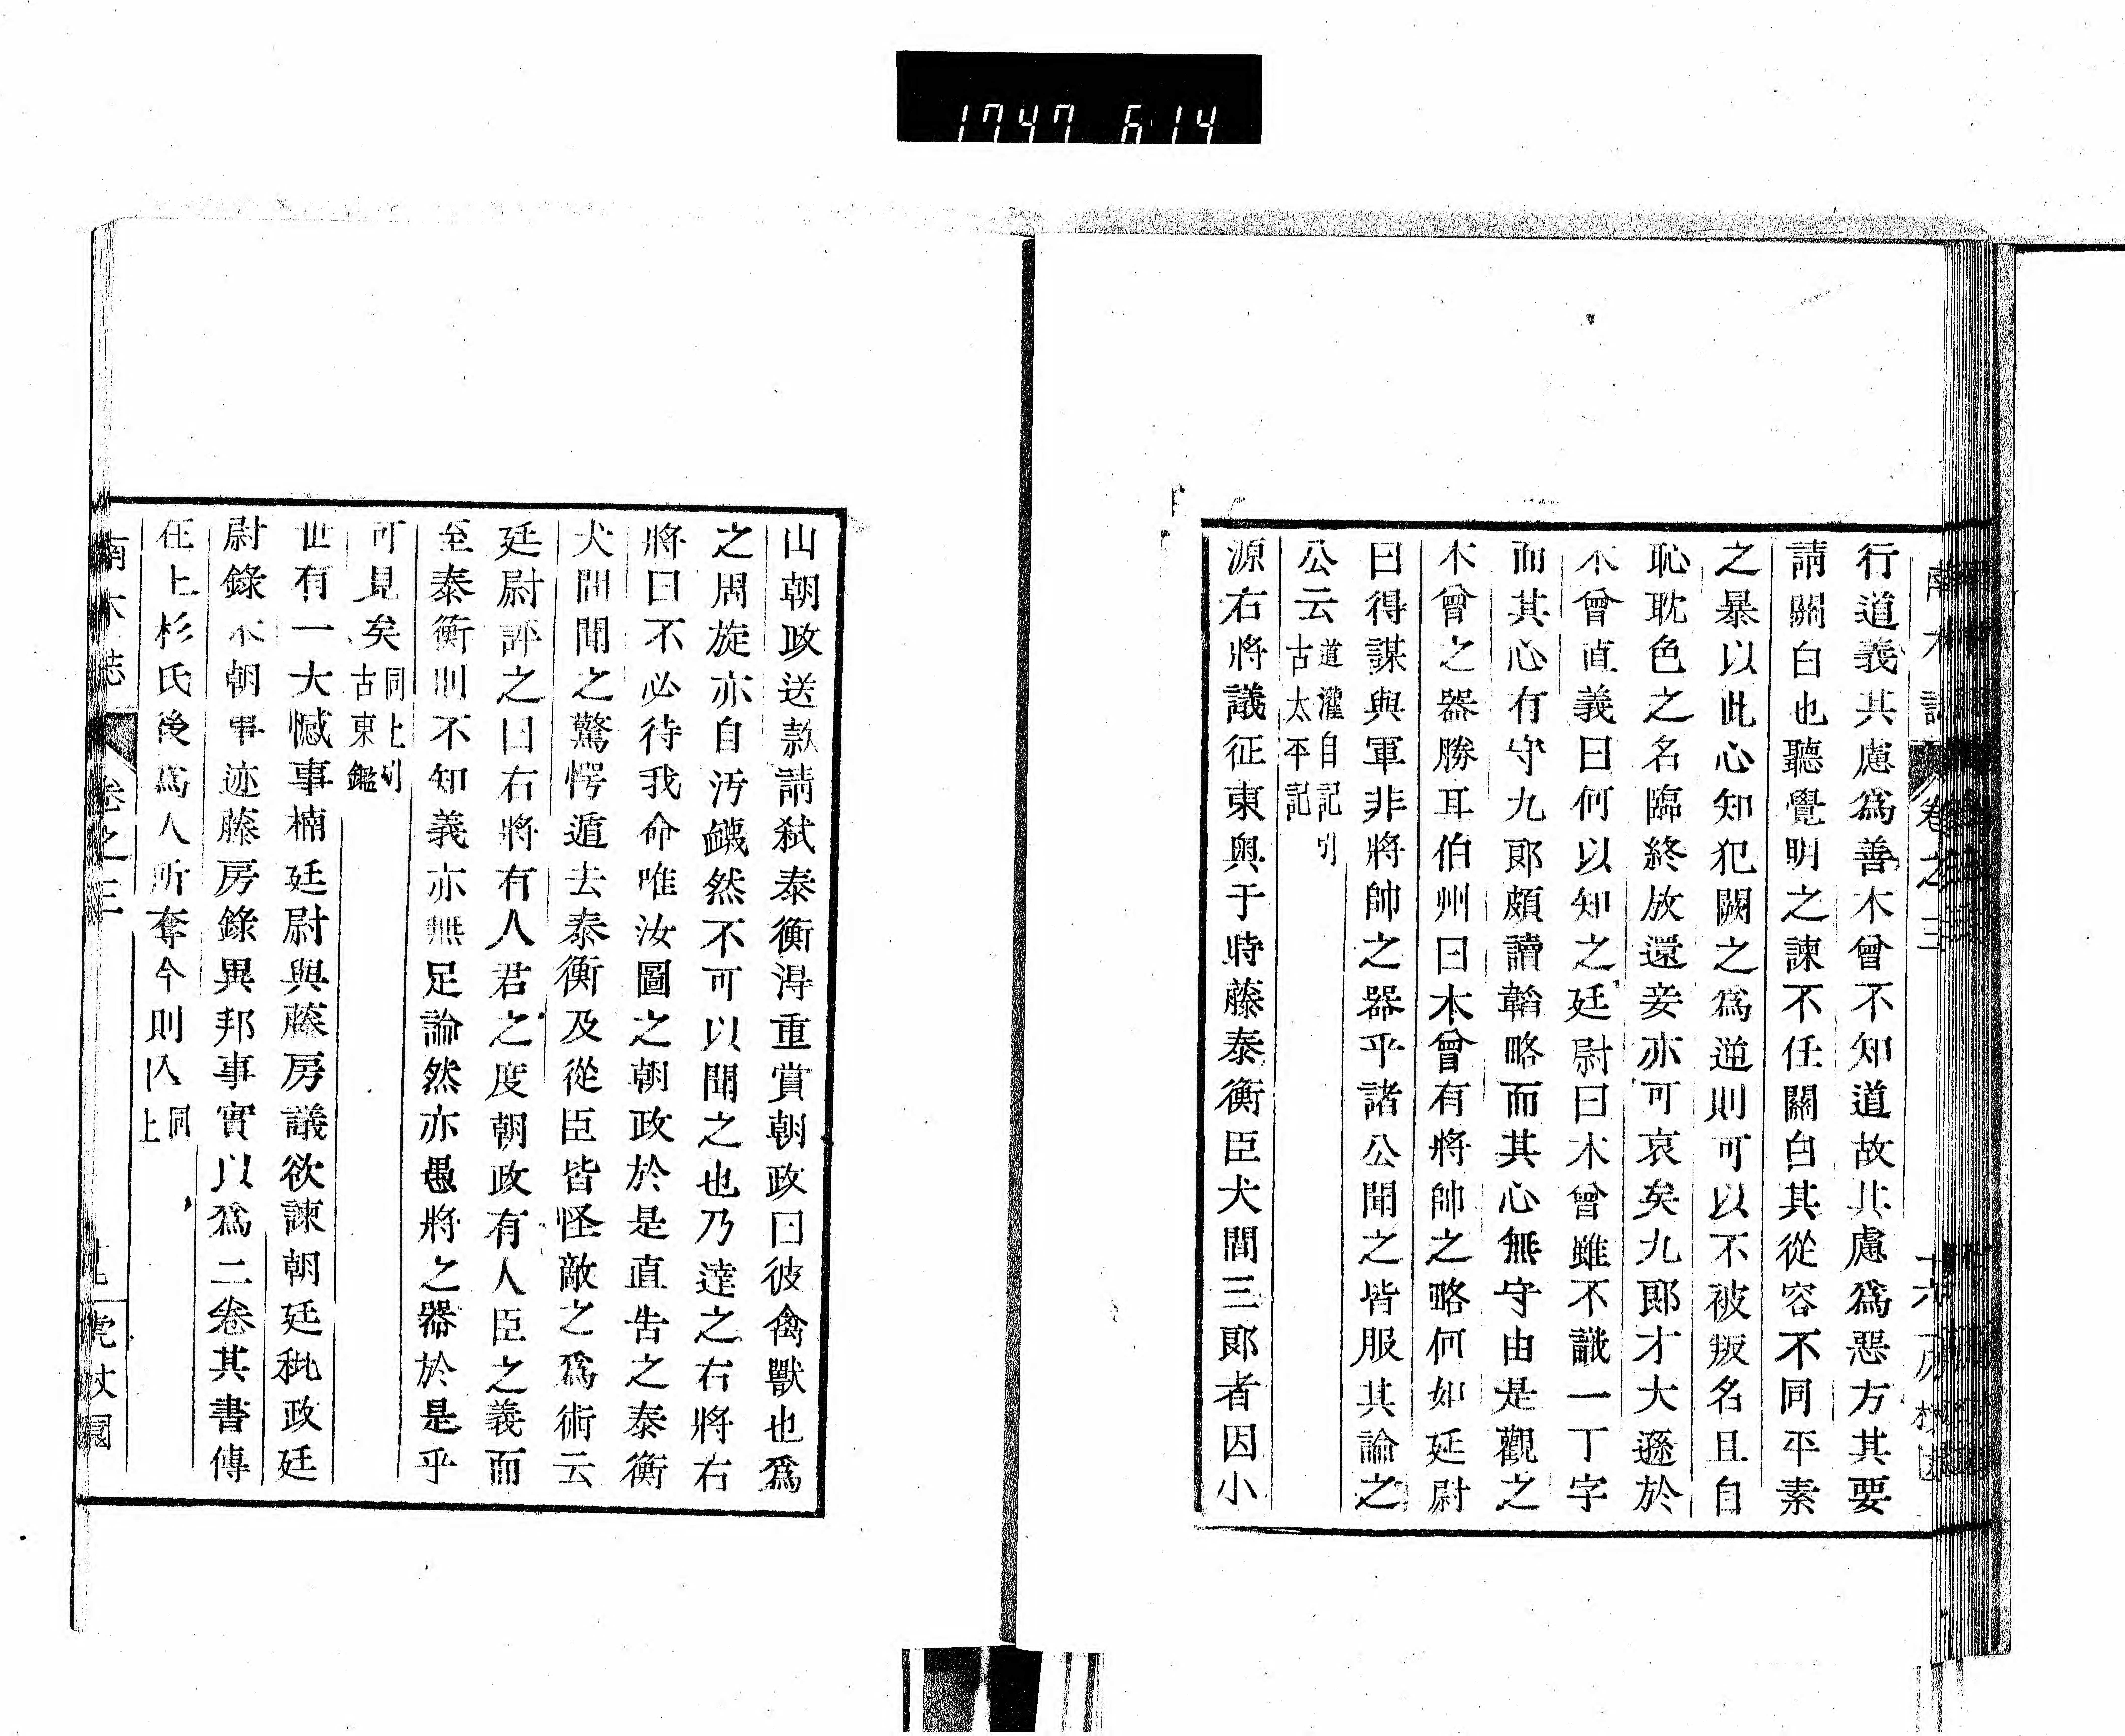 1747 614
行道義其慮爲善木曾不知道故其慮爲惡方其要
請關白也聽覺明之諫不任關白其從容不同平素
之暴以此心知犯闕之爲逆則可以不被叛名且自
恥耽色之名臨終放還妾亦可哀矣九郎才大遜於
木曾直義曰何以知之廷尉曰木曾雖不識一丁字
而其心有守九郎頗讀韜略而其心無守由是觀之
木曾之器勝耳伯州曰木曾有將帥之略何如廷尉
曰得謀與軍非將帥之器乎諸公聞之皆服其論之
公云道灌自記引古太平記
源右將議征東奧于時藤泰衡臣犬間三郎者因小
山朝政送款請弑泰衡得重賞朝政曰彼禽獸也爲
之周旋亦自汚衊然不可以聞之也乃達之右將右
將曰不必待我命唯汝圖之朝政於是直告之泰衡
犬間聞之驚愕遁去泰衡及從臣皆怪敵之爲術云
廷尉評之曰右將有人君之度朝政有人臣之義而
至泰衡則不知義亦無足論然亦愚將之器於是乎
可見矣同上引古東鑑
世有一大憾事楠廷尉與藤房議欲諫朝廷秕政廷
尉錄本朝事迹藤房錄異邦事實以爲二卷其書傳
在上杉氏後爲人所奪今則入同上
南木誌 卷之三